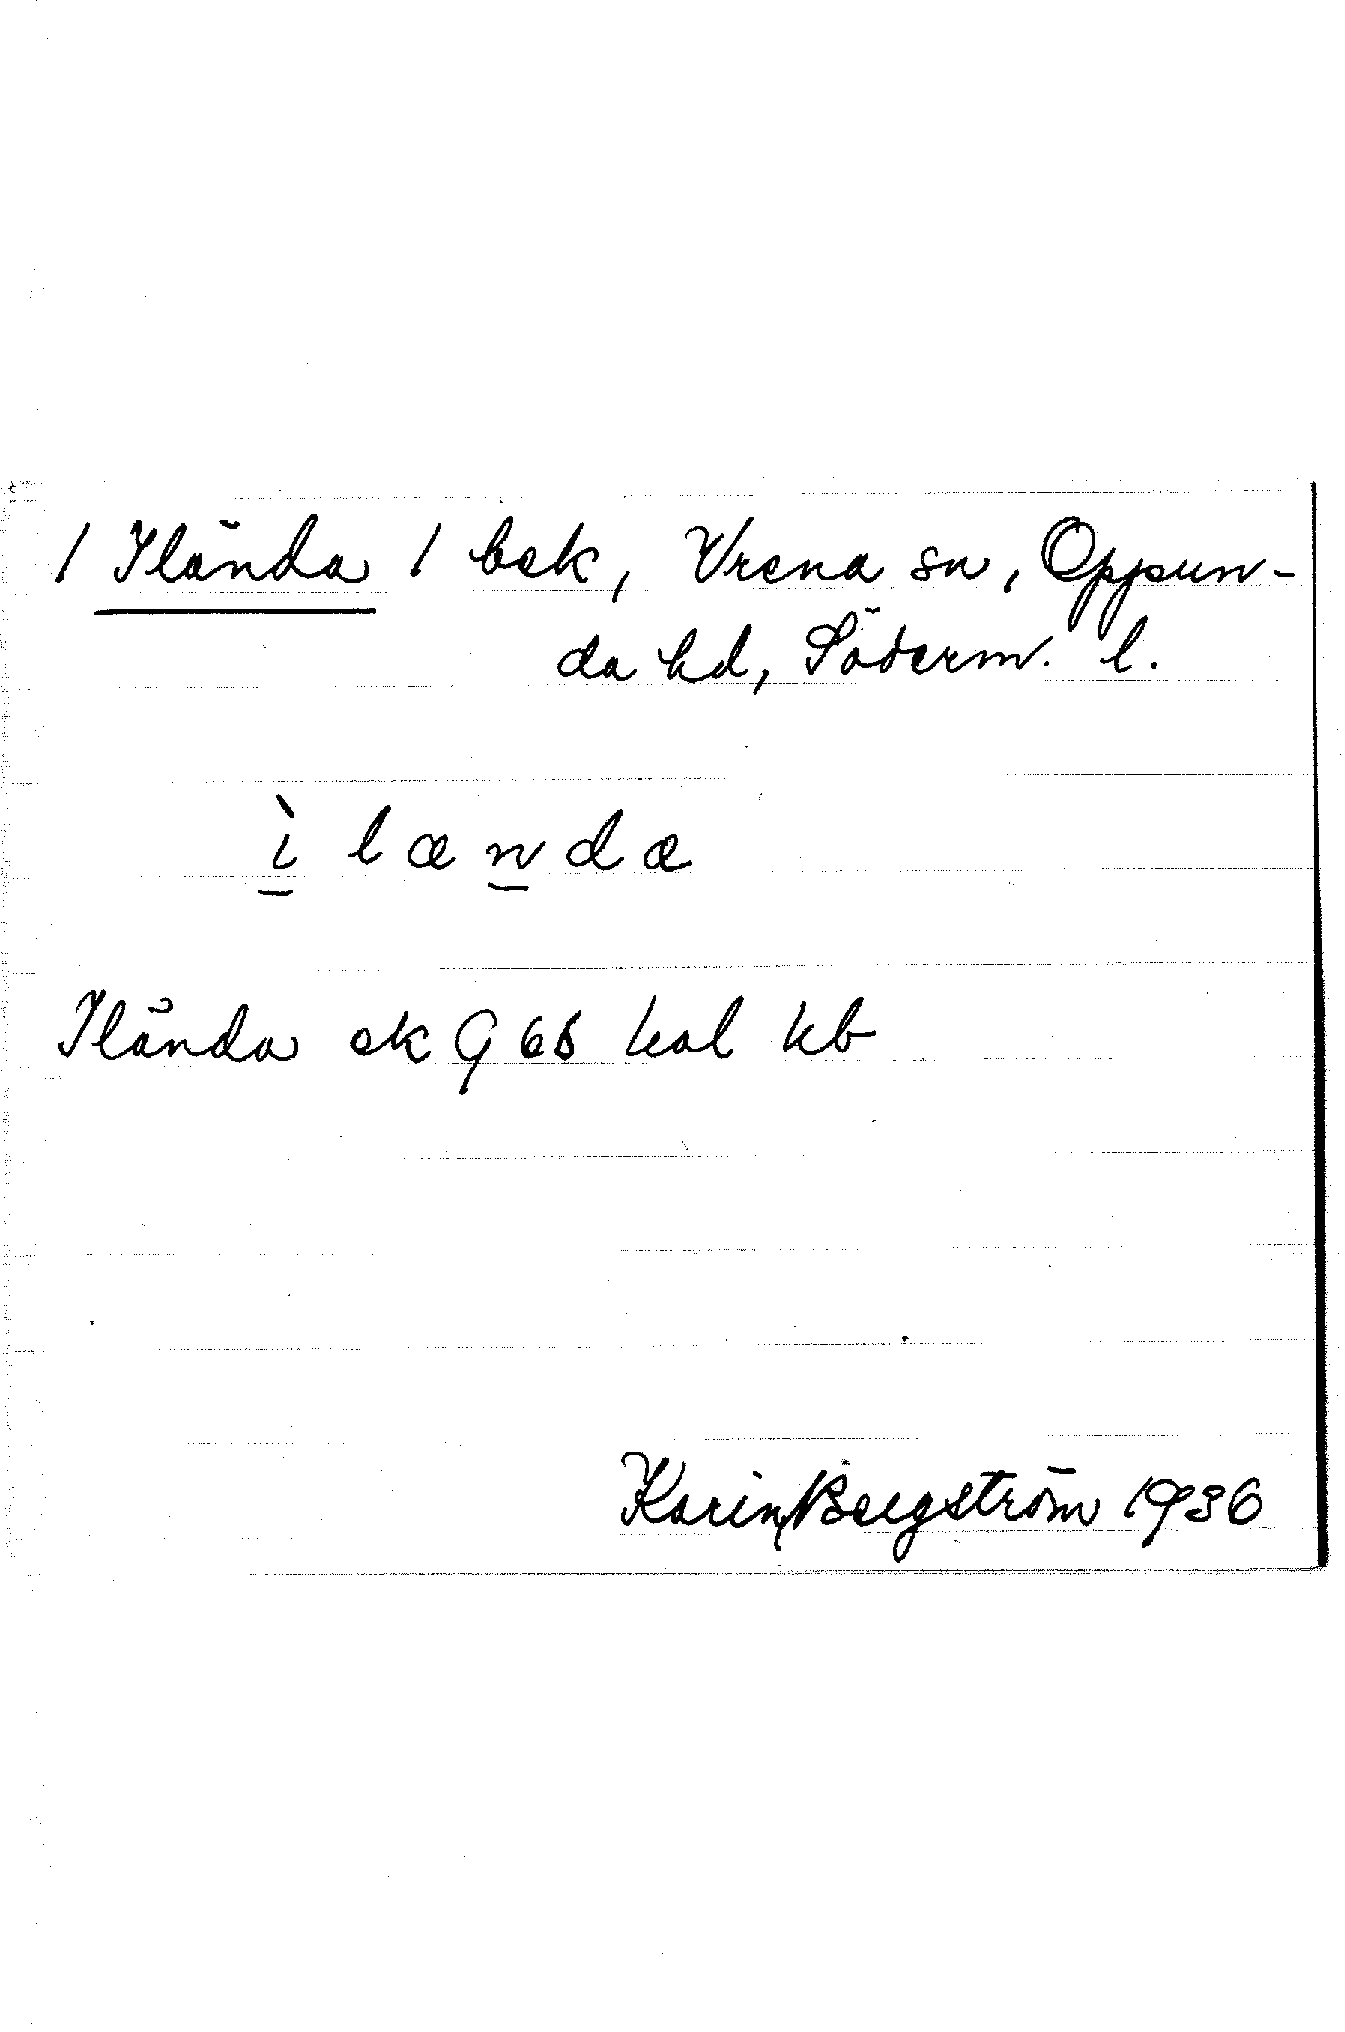 / Ilända / bek, Vrena sn, Oppun-
da hd, Söderm. l.
ì lænda
Ilända ek G 66 kal kb
Karin Bergström 1936